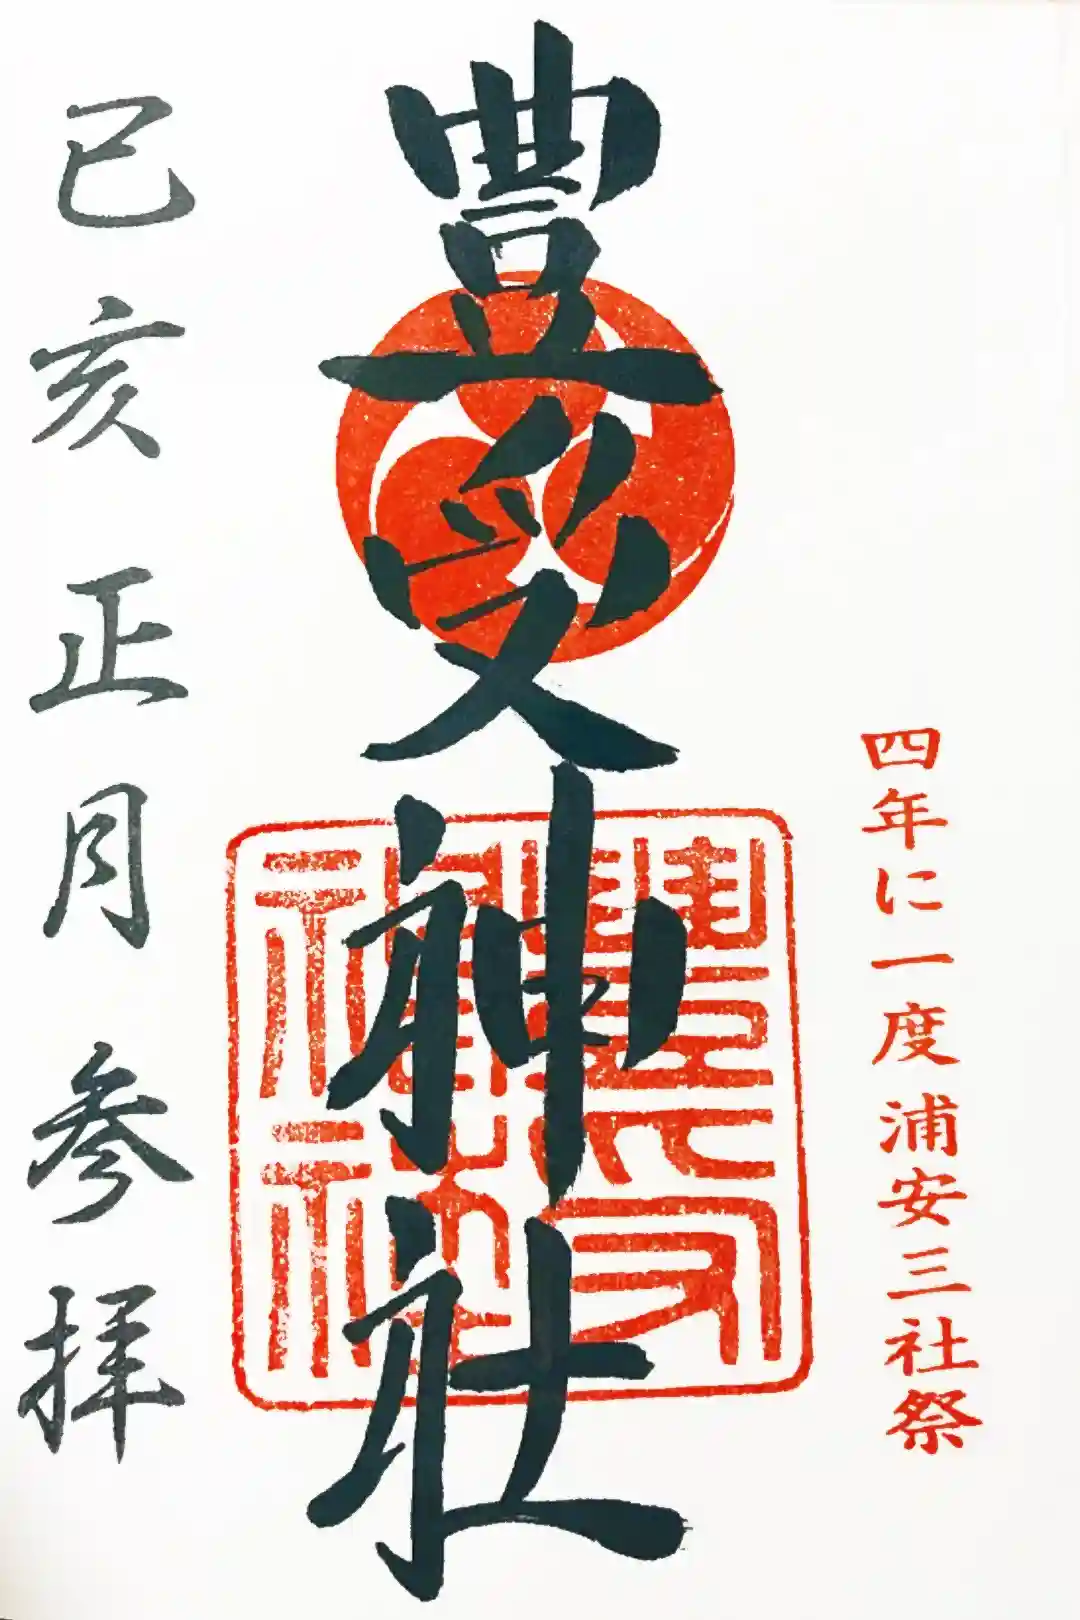 四年に一度浦安三社祭
豊受神社
豊受神社
己亥正月参拝